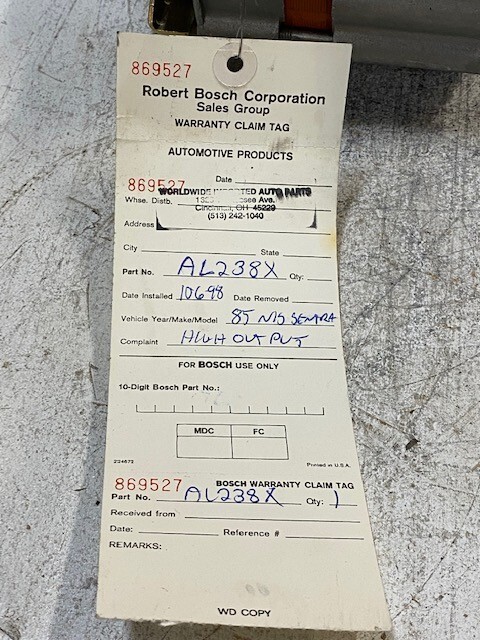 869527
Robert Bosch Corporation
Sales Group
WARRANTY CLAIM TAG
AUTOMOTIVE PRODUCTS
Date
869527
WORLDWIDE IMPORTED AUTO PARTS
Whse. Distb. Ave.
Cincinnati, OH 45229
(513) 242-1040
Address
City State
Part No. AL238X Qty:
Date Installed 10698 Date Removed
Vehicle Year/Make/Model 85 NIS SENTRA
Complaint HIGH OUT PUT
FOR BOSCH USE ONLY
10-Digit Bosch Part No.:
MDC FC
234673 Printed in U.S.A.
869527 BOSCH WARRANTY CLAIM TAG
Part No. AL238X Qty: 1
Received from
Date: Reference #
REMARKS:
WD COPY